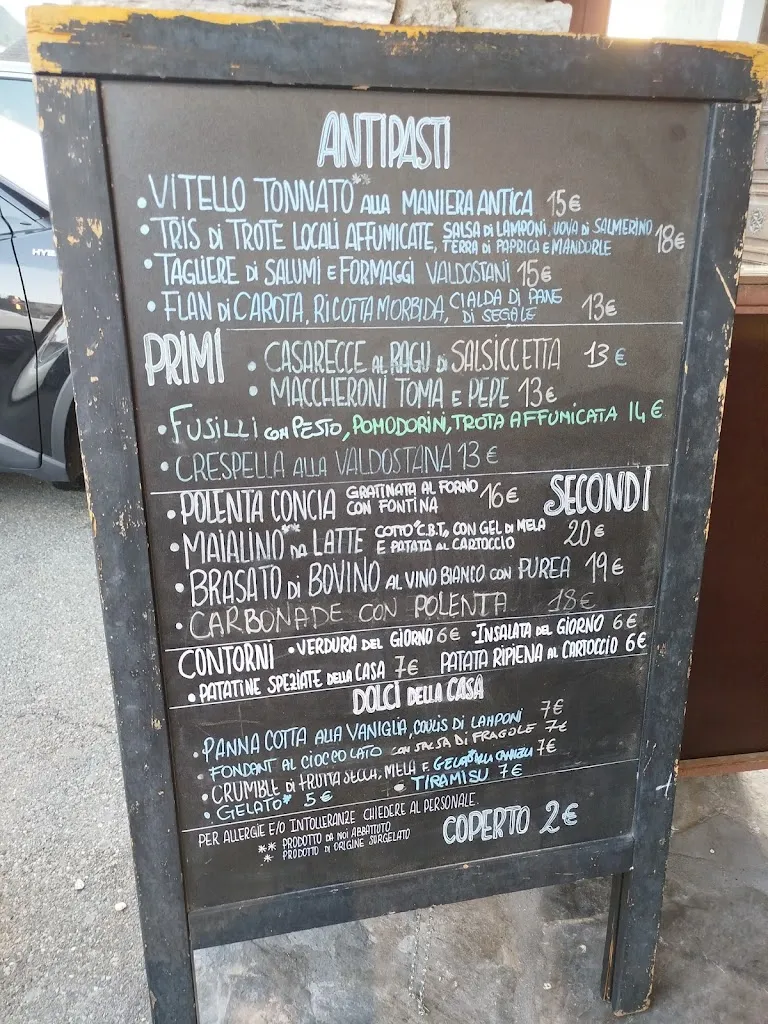 ANTIPASTI
• VITELLO TONNATO** ALLA MANIERA ANTICA 15€
• TRIS DI TROTE LOCALI AFFUMICATE, SALSA DI LAMPONI, UOVA DI SALMERINO
TERRA DI PAPRICA E MANDORLE 18€
• TAGLIERE DI SALUMI E FORMAGGI VALDOSTANI 15€
• FLAN DI CAROTA, RICOTTA MORBIDA, CIALDA DI PANE
DI SEGALE 13€
PRIMI • CASARECCE AL RAGÙ DI SALSICCETTA 13€
• MACCHERONI TOMA E PEPE 13€
• FUSILLI CON PESTO, POMODORINI, TROTA AFFUMICATA 14€
• CRESPELLA ALLA VALDOSTANA 13€
SECONDI
• POLENTA CONCIA GRATINATA AL FORNO
CON FONTINA 16€
• MAIALINO** DA LATTE COTTO C.B.T., CON GEL DI MELA
E PATATA AL CARTOCCIO 20€
• BRASATO DI BOVINO AL VINO BIANCO CON PUREA 19€
• CARBONADE CON POLENTA 18€
CONTORNI • VERDURA DEL GIORNO 6€ • INSALATA DEL GIORNO 6€
• PATATINE SPEZIATE DELLA CASA 7€ PATATA RIPIENA AL CARTOCCIO 6€
DOLCI DELLA CASA
• PANNA COTTA ALLA VANIGLIA, COULIS DI LAMPONI 7€
• FONDANT AL CIOCCOLATO CON SALSA DI FRAGOLE 7€
• CRUMBLE DI FRUTTA SECCA, MELA E GELATO* ALLA CANNELLA 7€
• GELATO* 5€ • TIRAMISU 7€
PER ALLERGIE E/O INTOLLERANZE CHIEDERE AL PERSONALE.
** PRODOTTO DA NOI ABBATTUTO
* PRODOTTO DI ORIGINE SURGELATO
COPERTO 2€
HYB